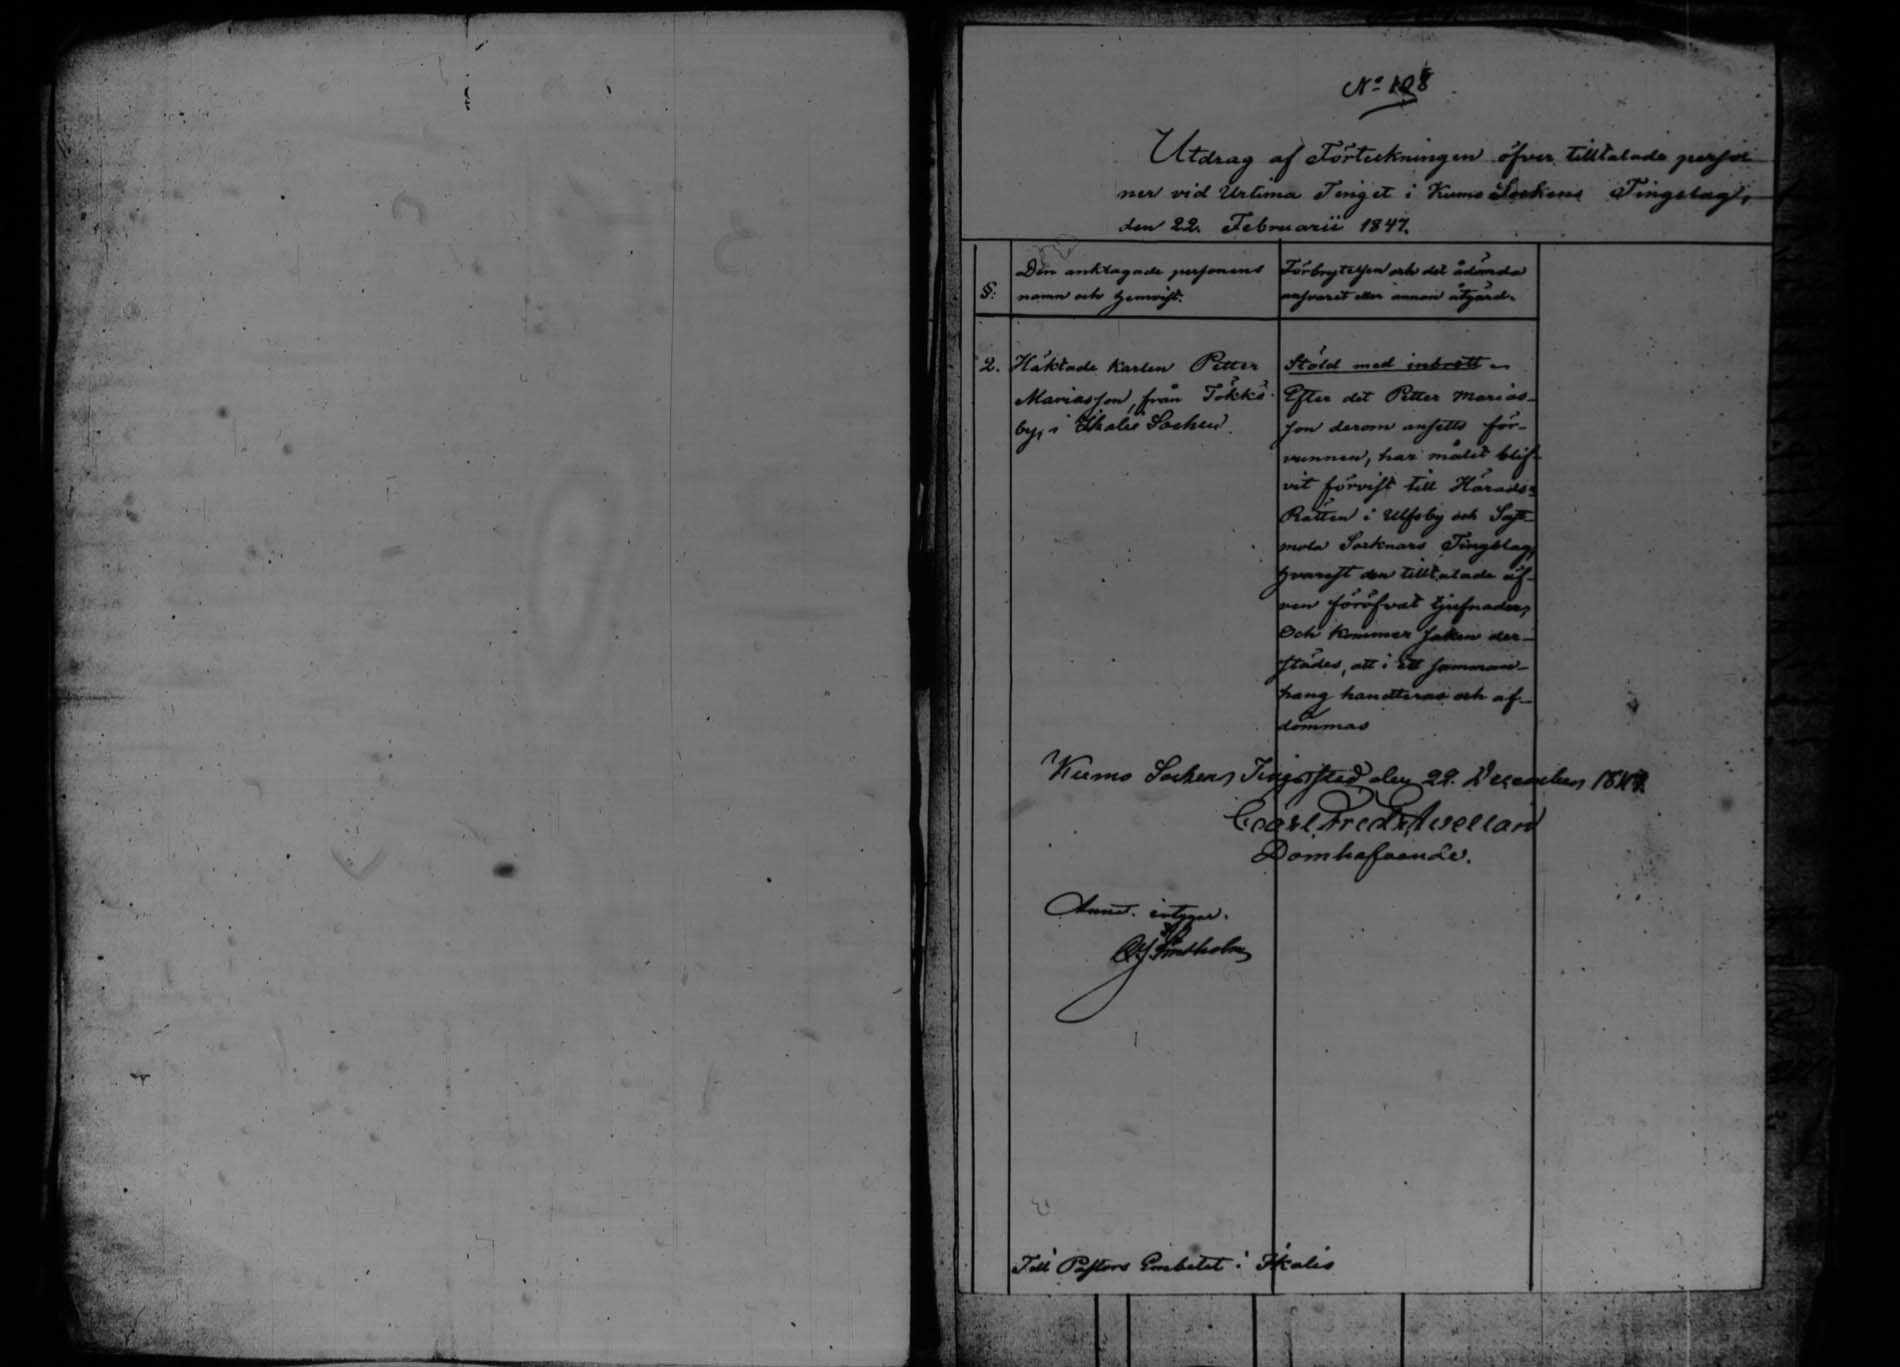 No 108
Utdrag af Förteckningen öfver tilltalade perso-
ner vid Urtima Tinget i Kumo Sockens Tingslag,
den 22. Februarii 1847.
§:
Den anklagade personens
namn och hemvist.
Förbrytelsen och det ådömda
ansvaret eller annan åtgärd.
2. Häktade karlen Petter
Mariasson, från Tökkö
by, i Ikalis Socken.
Stöld med inbrott.
Efter det Petter Marias-
son derom ansetts för-
vunnen, har målet blif-
vit förvist till Härads-
Rätten i Ulfsby och Sast-
mola Socknars Tingslag,
hvarest den tilltalade äf-
ven föröfvat tjufnader,
Och kommer saken der-
städes, att i ett samman-
hang handteras och af-
dömmas
Kumo Sockens Tingsstad den 22. December 1847
Carl Fredr Avellan
Domhafvande.
intygar.
Till Pastors Embetet i Ikalis